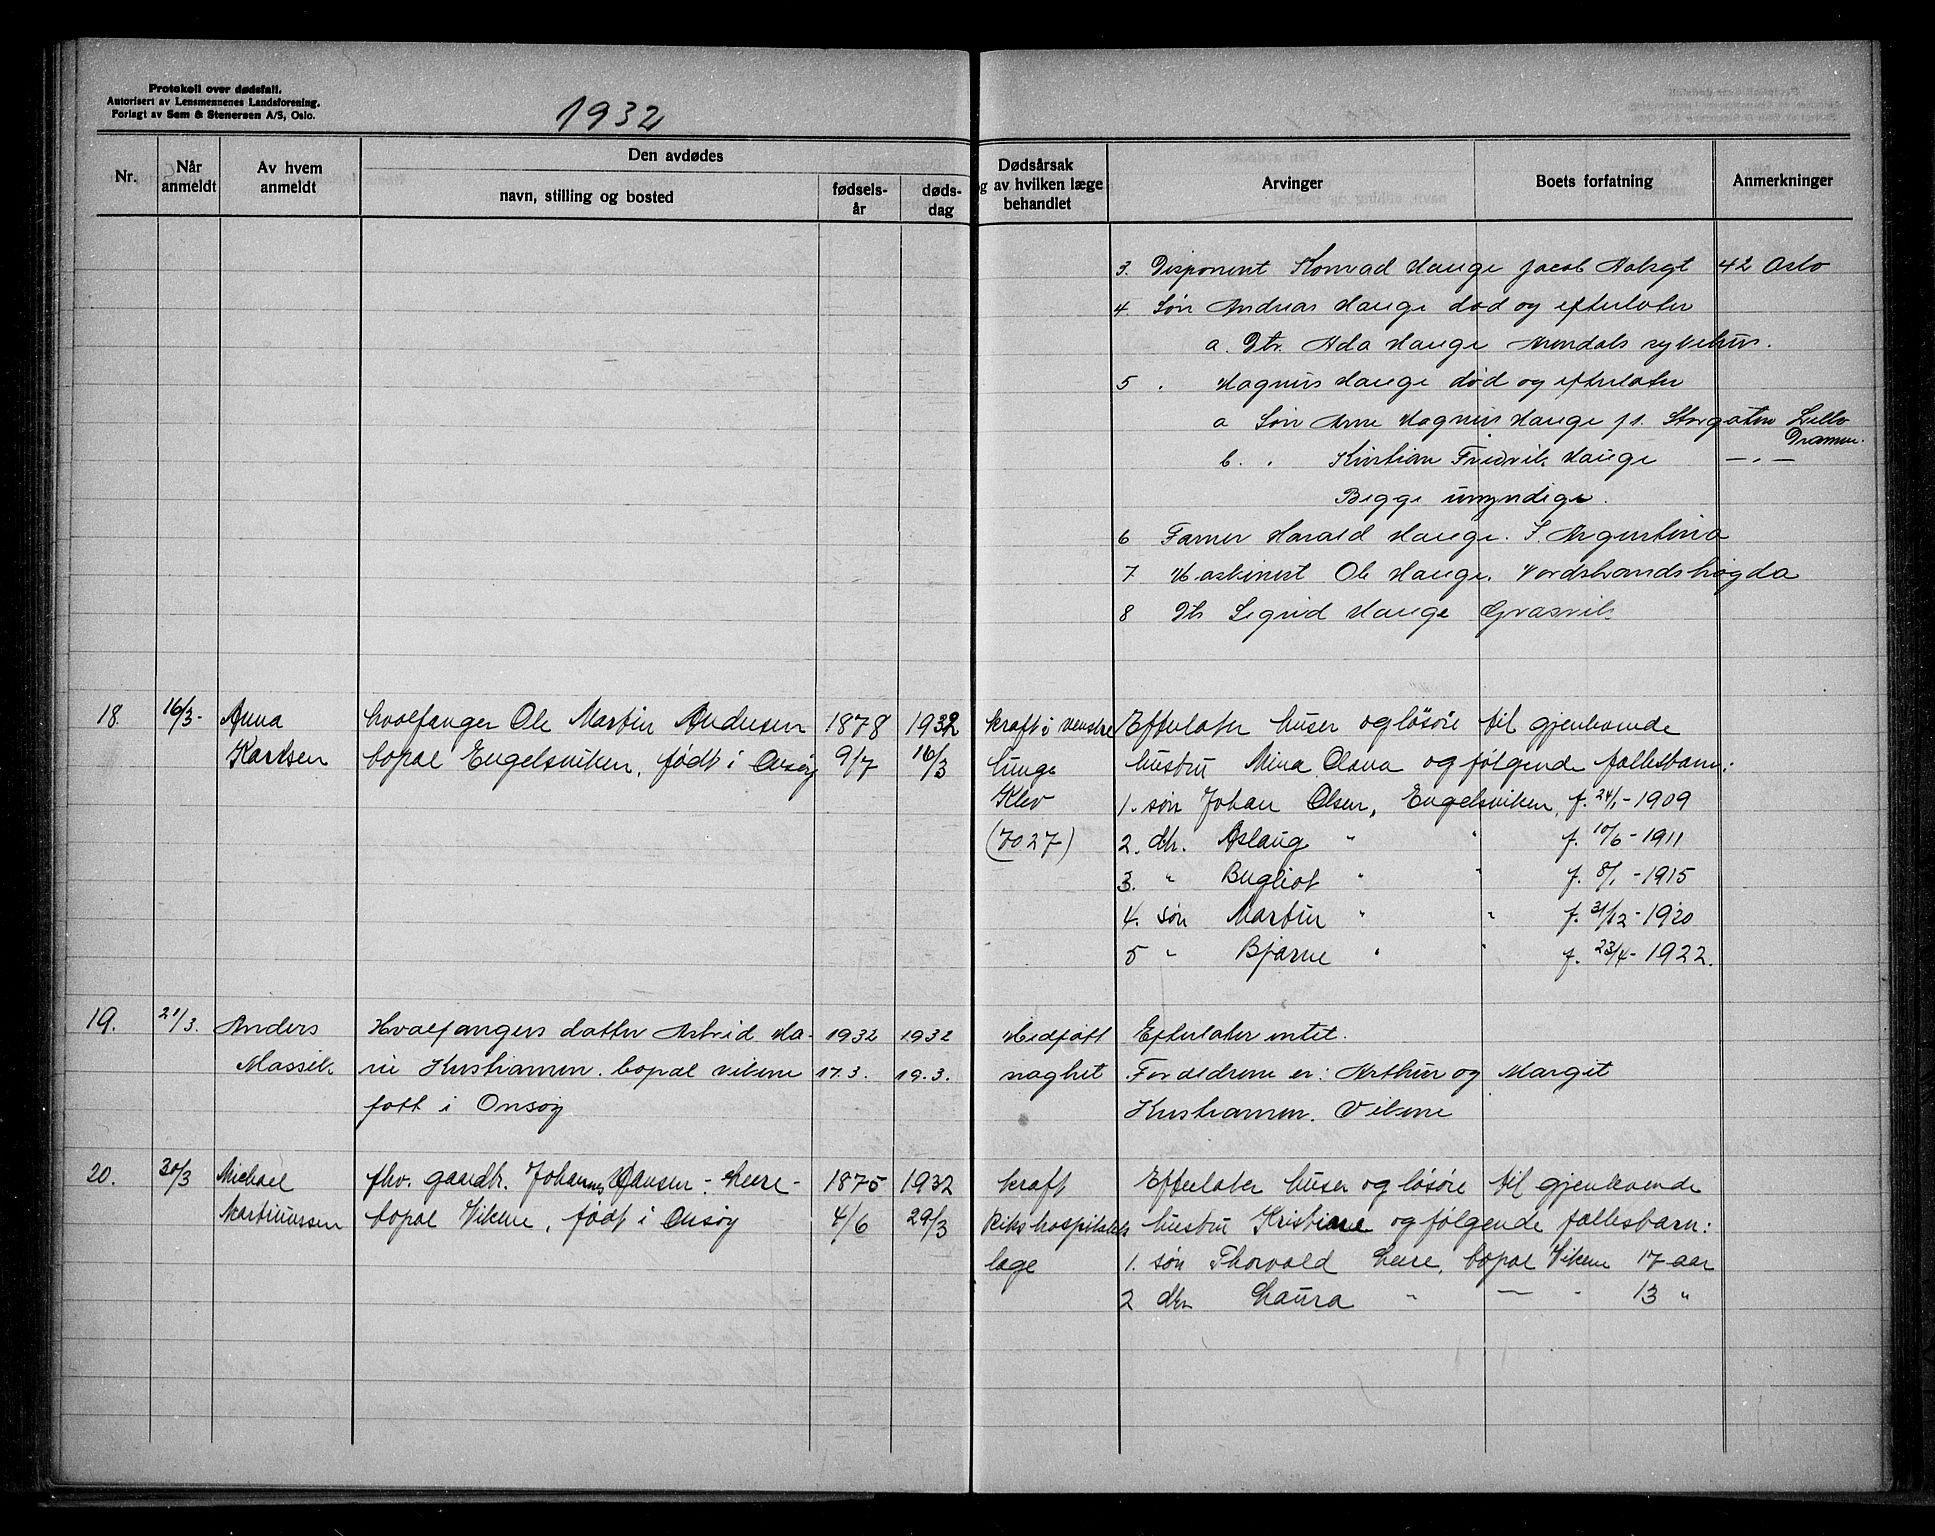 Protokoll over dødsfall.
Autorisert av Lensmennenes Landsforening.
Forlagt av Sem & Stenersen A/S, Oslo.
1932
Nr.
Når anmeldt
Av hvem anmeldt
Den avdødes
navn, stilling og bosted
fødsels-år
døds-dag
Dødsårsak
og av hvilken læge
behandlet
Arvinger
Boets forfatning
Anmerkninger
3. Disponent Konrad Hauge Jacob Aalsgt 42 Oslo
4 Søn Andreas Hauge død og efterlater
a. Dtr. Ada Hauge Arendals sykehus.
5 . Magnus Hauge død og efterlater
a Søn Arne Magnus Hauge Storgaten
Drammen.
b. . Kristian Fredrik Hauge — . —
Begge umyndige.
6 Farmer Harald Hauge. S. Argentina
7 Maskinist Ole Hauge. Nordstrandshøgda
8 Dtr Sigrid Hauge Græsvik
18. 16/3- Anna hvalfanger Ole Martin Andersen 1878 1932 kræft i venstre Efterlater huser og løsøre til gjenlevende
Karlsen bopæl Engelsviken, født i Onsøy 9/7 16/3 lunge hustru Mina Olava og følgende fællesbarn:
Klev 1. søn Johan Olsen, Engelsviken, f. 24/1-1909
(7027) 2. dtr. Aslaug " " f. 10/6-1911
3. " Bergliot " " f. 8/1-1915
4. søn Martin " " f. 31/12-1920
5 " Bjarne " " f. 23/4-1922.
19. 21/3. Anders Hvalfangers datter Astrid Ma- 1932 1932 Medføtt Efterlater intet.
Massik rie Kristiansen. bopæl Vikene 17.3. 19.3. svaghet Foreldrene er: Arthur og Margit
føtt i Onsøy Kristiansen. Vikene
20. 30/3 Michael fhv. gaardbr. Johannes Hansen-Leere- 1875 1932 kræft Efterlater huser og løsøre til gjenlevende
Martinussen bopæl Vikene, født i Onsøy 4/6 29/3 Rikshospitalets hustru Kristiane og følgende fællesbarn:
læge 1. søn Thorvald Leere, bopæl Vikene 17 aar
2 dtr Laura " — " 13 "